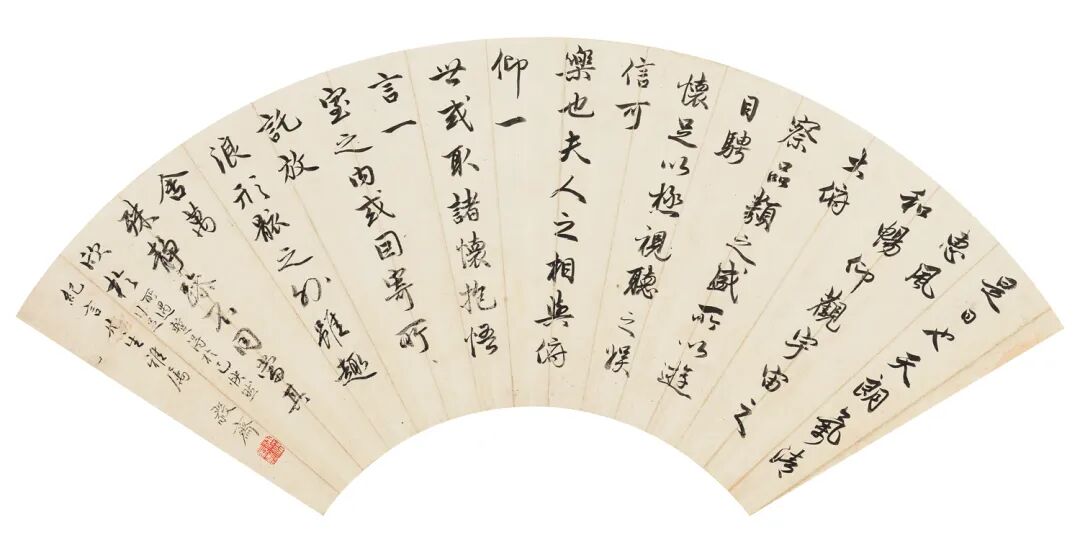 是日也天朗氣清
惠風
和暢仰觀宇宙之
大俯
察品類之盛所以遊
目騁
懷足以極視聽之娛
信可
樂也夫人之相與俯
仰一
世或取諸懷抱悟
言一
室之內或因寄所
託放
浪形骸之外雖趣
舍萬
殊靜躁不同當其
欣於
所遇暫得於己快然
紀言先生雅屬
敬齋